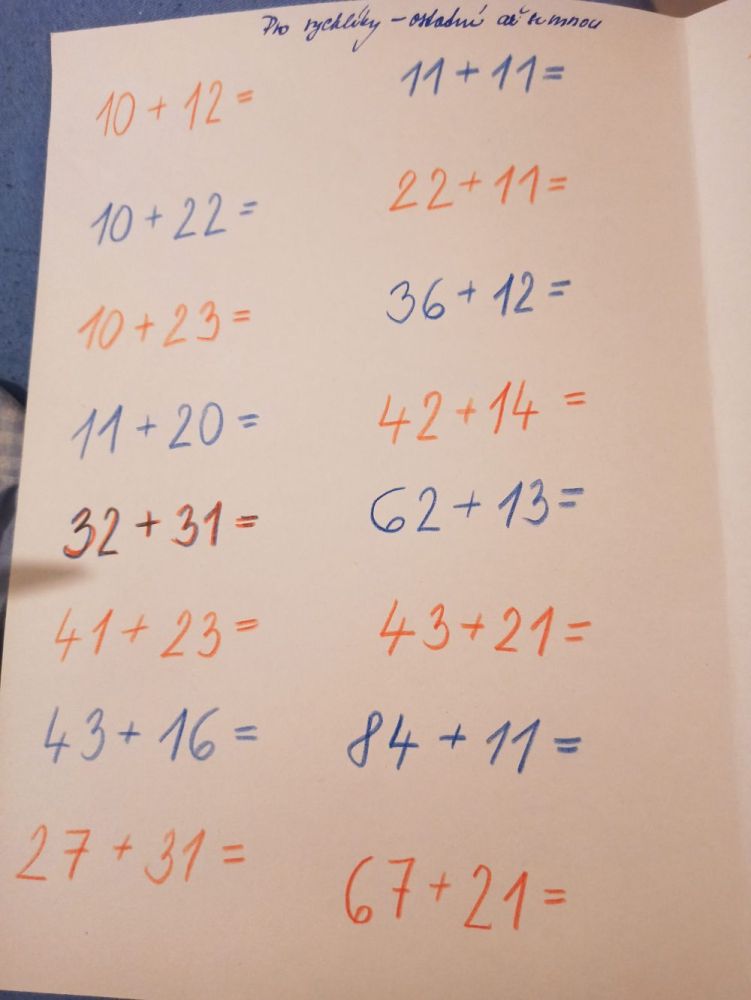 Pro rychlíky – ostatní až se mnou
10 + 12 =
10 + 22 =
10 + 23 =
11 + 20 =
32 + 31 =
41 + 23 =
43 + 16 =
27 + 31 =
11 + 11 =
22 + 11 =
36 + 12 =
42 + 14 =
62 + 13 =
43 + 21 =
84 + 11 =
67 + 21 =